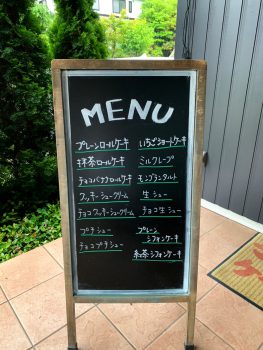 MENU
プレーンロールケーキ
抹茶ロールケーキ
チョコバナナロールケーキ
クッキーシュークリーム
チョコクッキーシュークリーム
プチシュー
チョコプチシュー
いちごショートケーキ
ミルクレープ
モンブランタルト
生シュー
チョコ生シュー
プレーン
シフォンケーキ
紅茶シフォンケーキ